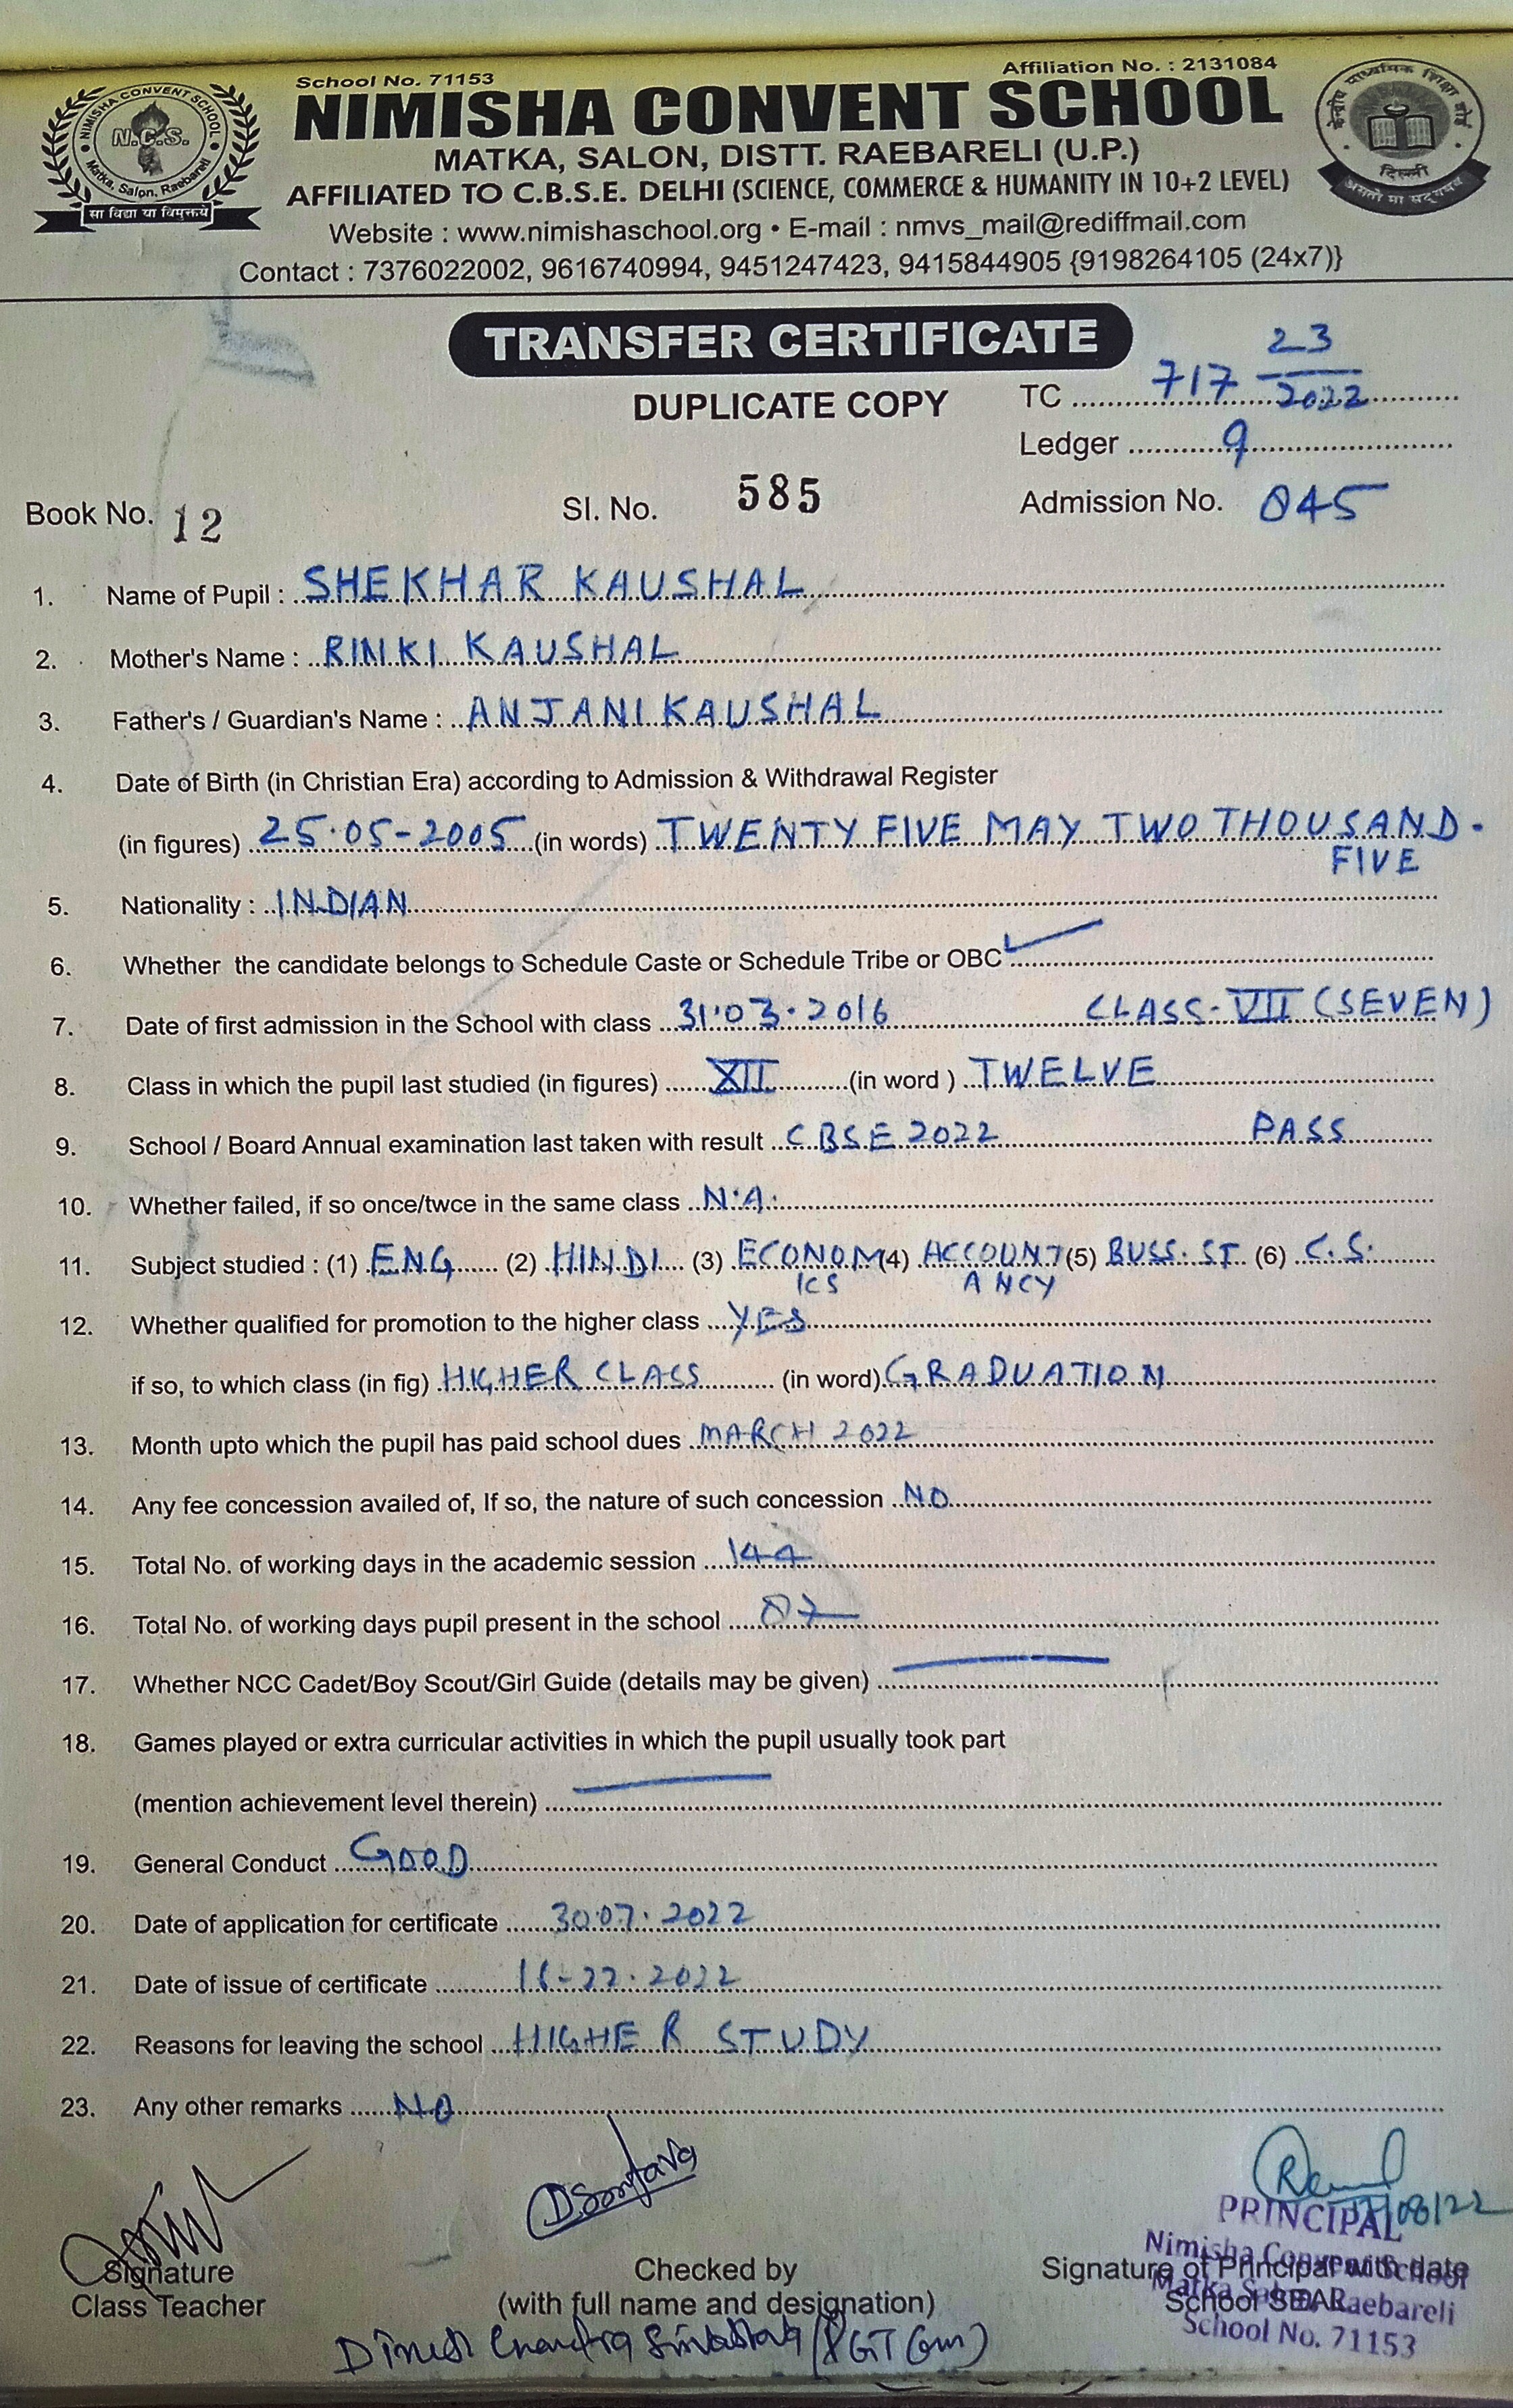 School No. 71153
Affiliation No. : 2131084
NIMISHA CONVENT SCHOOL
MATKA, SALON, DISTT. RAEBARELI (U.P.)
AFFILIATED TO C.B.S.E. DELHI (SCIENCE, COMMERCE & HUMANITY IN 10+2 LEVEL)
Website : www.nimishaschool.org • E-mail : nmvs_mail@rediffmail.com
Contact : 7376022002, 9616740994, 9451247423, 9415844905 {9198264105 (24x7)}
NIMISHA CONVENT SCHOOL
N.C.S.
Matka, Salon, Raebareli
सा विद्या या विमुक्तये
केन्द्रीय माध्यमिक शिक्षा बोर्ड
दिल्ली
असतो मा सद्गमय
TRANSFER CERTIFICATE
DUPLICATE COPY
TC 717 23/2022
Ledger 9
Book No. 12 Sl. No. 585 Admission No. 045
1. Name of Pupil : SHEKHAR KAUSHAL
2. Mother's Name : RINKI KAUSHAL
3. Father's / Guardian's Name : ANJANI KAUSHAL
4. Date of Birth (in Christian Era) according to Admission & Withdrawal Register
(in figures) 25.05-2005 (in words) TWENTY FIVE MAY TWO THOUSAND.
FIVE
5. Nationality : INDIAN
6. Whether the candidate belongs to Schedule Caste or Schedule Tribe or OBC ✓
7. Date of first admission in the School with class 31.03.2016 CLASS-VII (SEVEN)
8. Class in which the pupil last studied (in figures) XII (in word ) TWELVE
9. School / Board Annual examination last taken with result CBSE 2022 PASS
10. Whether failed, if so once/twce in the same class N.A.
11. Subject studied : (1) ENG (2) HINDI (3) ECONOM (4) ACCOUNT (5) BUSS. ST (6) C.S.
ICS ANCY
12. Whether qualified for promotion to the higher class YES
if so, to which class (in fig) HIGHER CLASS (in word) GRADUATION
13. Month upto which the pupil has paid school dues MARCH 2022
14. Any fee concession availed of, If so, the nature of such concession NO
15. Total No. of working days in the academic session 144
16. Total No. of working days pupil present in the school 87
17. Whether NCC Cadet/Boy Scout/Girl Guide (details may be given)
18. Games played or extra curricular activities in which the pupil usually took part
(mention achievement level therein)
19. General Conduct GOOD
20. Date of application for certificate 30.07.2022
21. Date of issue of certificate 2022
22. Reasons for leaving the school HIGHER STUDY
23. Any other remarks NO
08/22
PRINCIPAL
Nimisha Convent School
Matka Salon, Raebareli
School No. 71153
Signature Checked by Signature of Principal with date
Class Teacher (with full name and designation) School SEAL
Dinesh Chandra